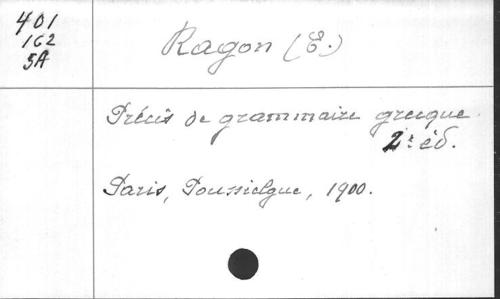 401
162
5A
Ragon (E.)
Précis de grammaire grecque
2e éd.
Paris, Poussielgue, 1900.